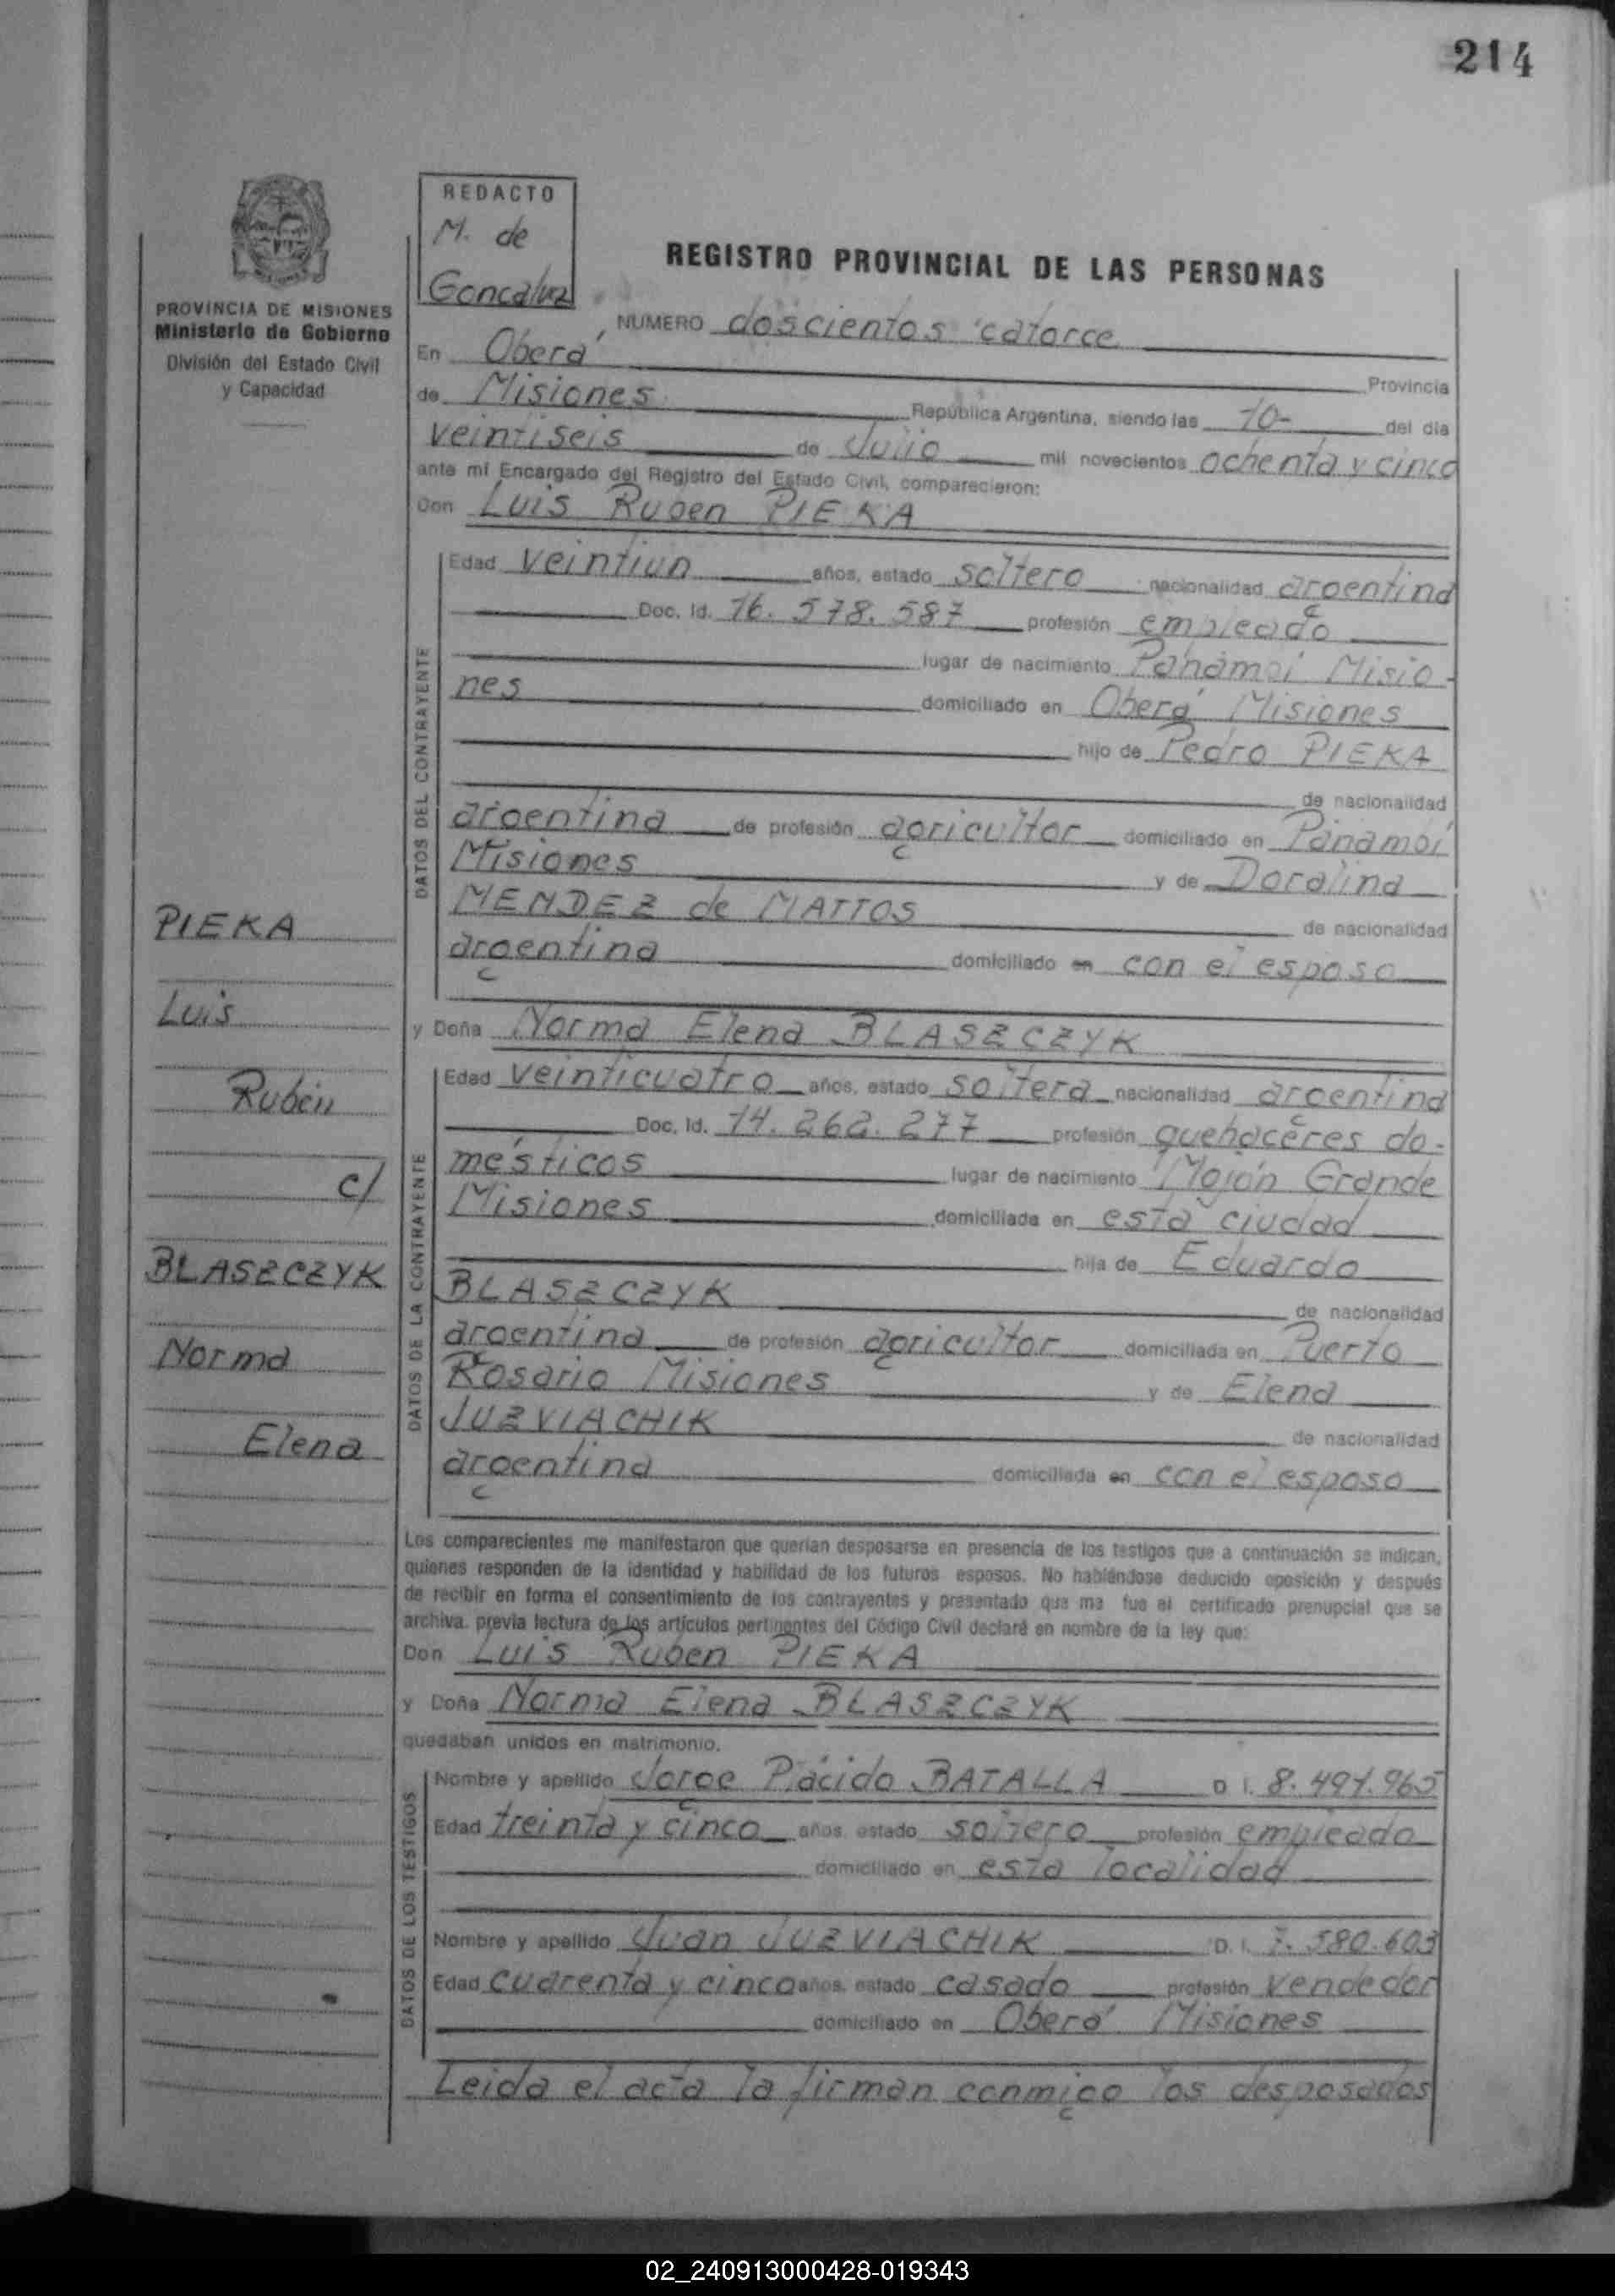 214
REDACTO
M. de
Goncalvez
PROVINCIA DE MISIONES
Ministerio de Gobierno
División del Estado Civil
y Capacidad
REGISTRO PROVINCIAL DE LAS PERSONAS
NUMERO doscientos catorce
En Oberá Provincia
de Misiones República Argentina, siendo las 10- del día
veintiseis de Julio mil novecientos ochenta y cinco
ante mí Encargado del Registro del Estado Civil, comparecieron:
Don Luis Ruben PIEKA
DATOS DEL CONTRAYENTE
Edad veintiun años, estado soltero nacionalidad argentina
Doc. Id. 16.578.587 profesión empleado
lugar de nacimiento Panambí Misio-
nes domiciliado en Oberá Misiones
hijo de Pedro PIEKA
de nacionalidad
argentina de profesión agricultor domiciliado en Panambí
Misiones y de Doralina
MENDEZ de MATTOS de nacionalidad
argentina domiciliado en con el esposo
y Doña Norma Elena BLASZCZYK
DATOS DE LA CONTRAYENTE
Edad veinticuatro años, estado soltera nacionalidad argentina
Doc. Id. 14.262.277 profesión quehaceres do-
mésticos lugar de nacimiento Mojón Grande
Misiones domiciliada en esta ciudad
hija de Eduardo
BLASZCZYK de nacionalidad
argentina de profesión agricultor domiciliada en Puerto
Rosario Misiones y de Elena
JUZVIACHIK de nacionalidad
argentina domiciliada en con el esposo
Los comparecientes me manifestaron que querían desposarse en presencia de los testigos que a continuación se indican,
quienes responden de la identidad y habilidad de los futuros esposos. No habiéndose deducido oposición y después
de recibir en forma el consentimiento de los contrayentes y presentado que me fue el certificado prenupcial que se
archiva. previa lectura de los artículos pertinentes del Código Civil declaré en nombre de la ley que:
Don Luis Ruben PIEKA
y Doña Norma Elena BLASZCZYK
quedaban unidos en matrimonio.
DATOS DE LOS TESTIGOS
Nombre y apellido Jorge Plácido BATALLA D I. 8.491.965
Edad treinta y cinco años, estado soltero profesión empleado
domiciliado en esta localidad
Nombre y apellido Juan JUZVIACHIK D. I. 7.580.603
Edad cuarenta y cinco años, estado casado profesión vendedor
domiciliado en Oberá Misiones
Leida el acta la firman conmigo los desposados
PIEKA
Luis
Rubén
c/
BLASZCZYK
Norma
Elena
02_240913000428-019343